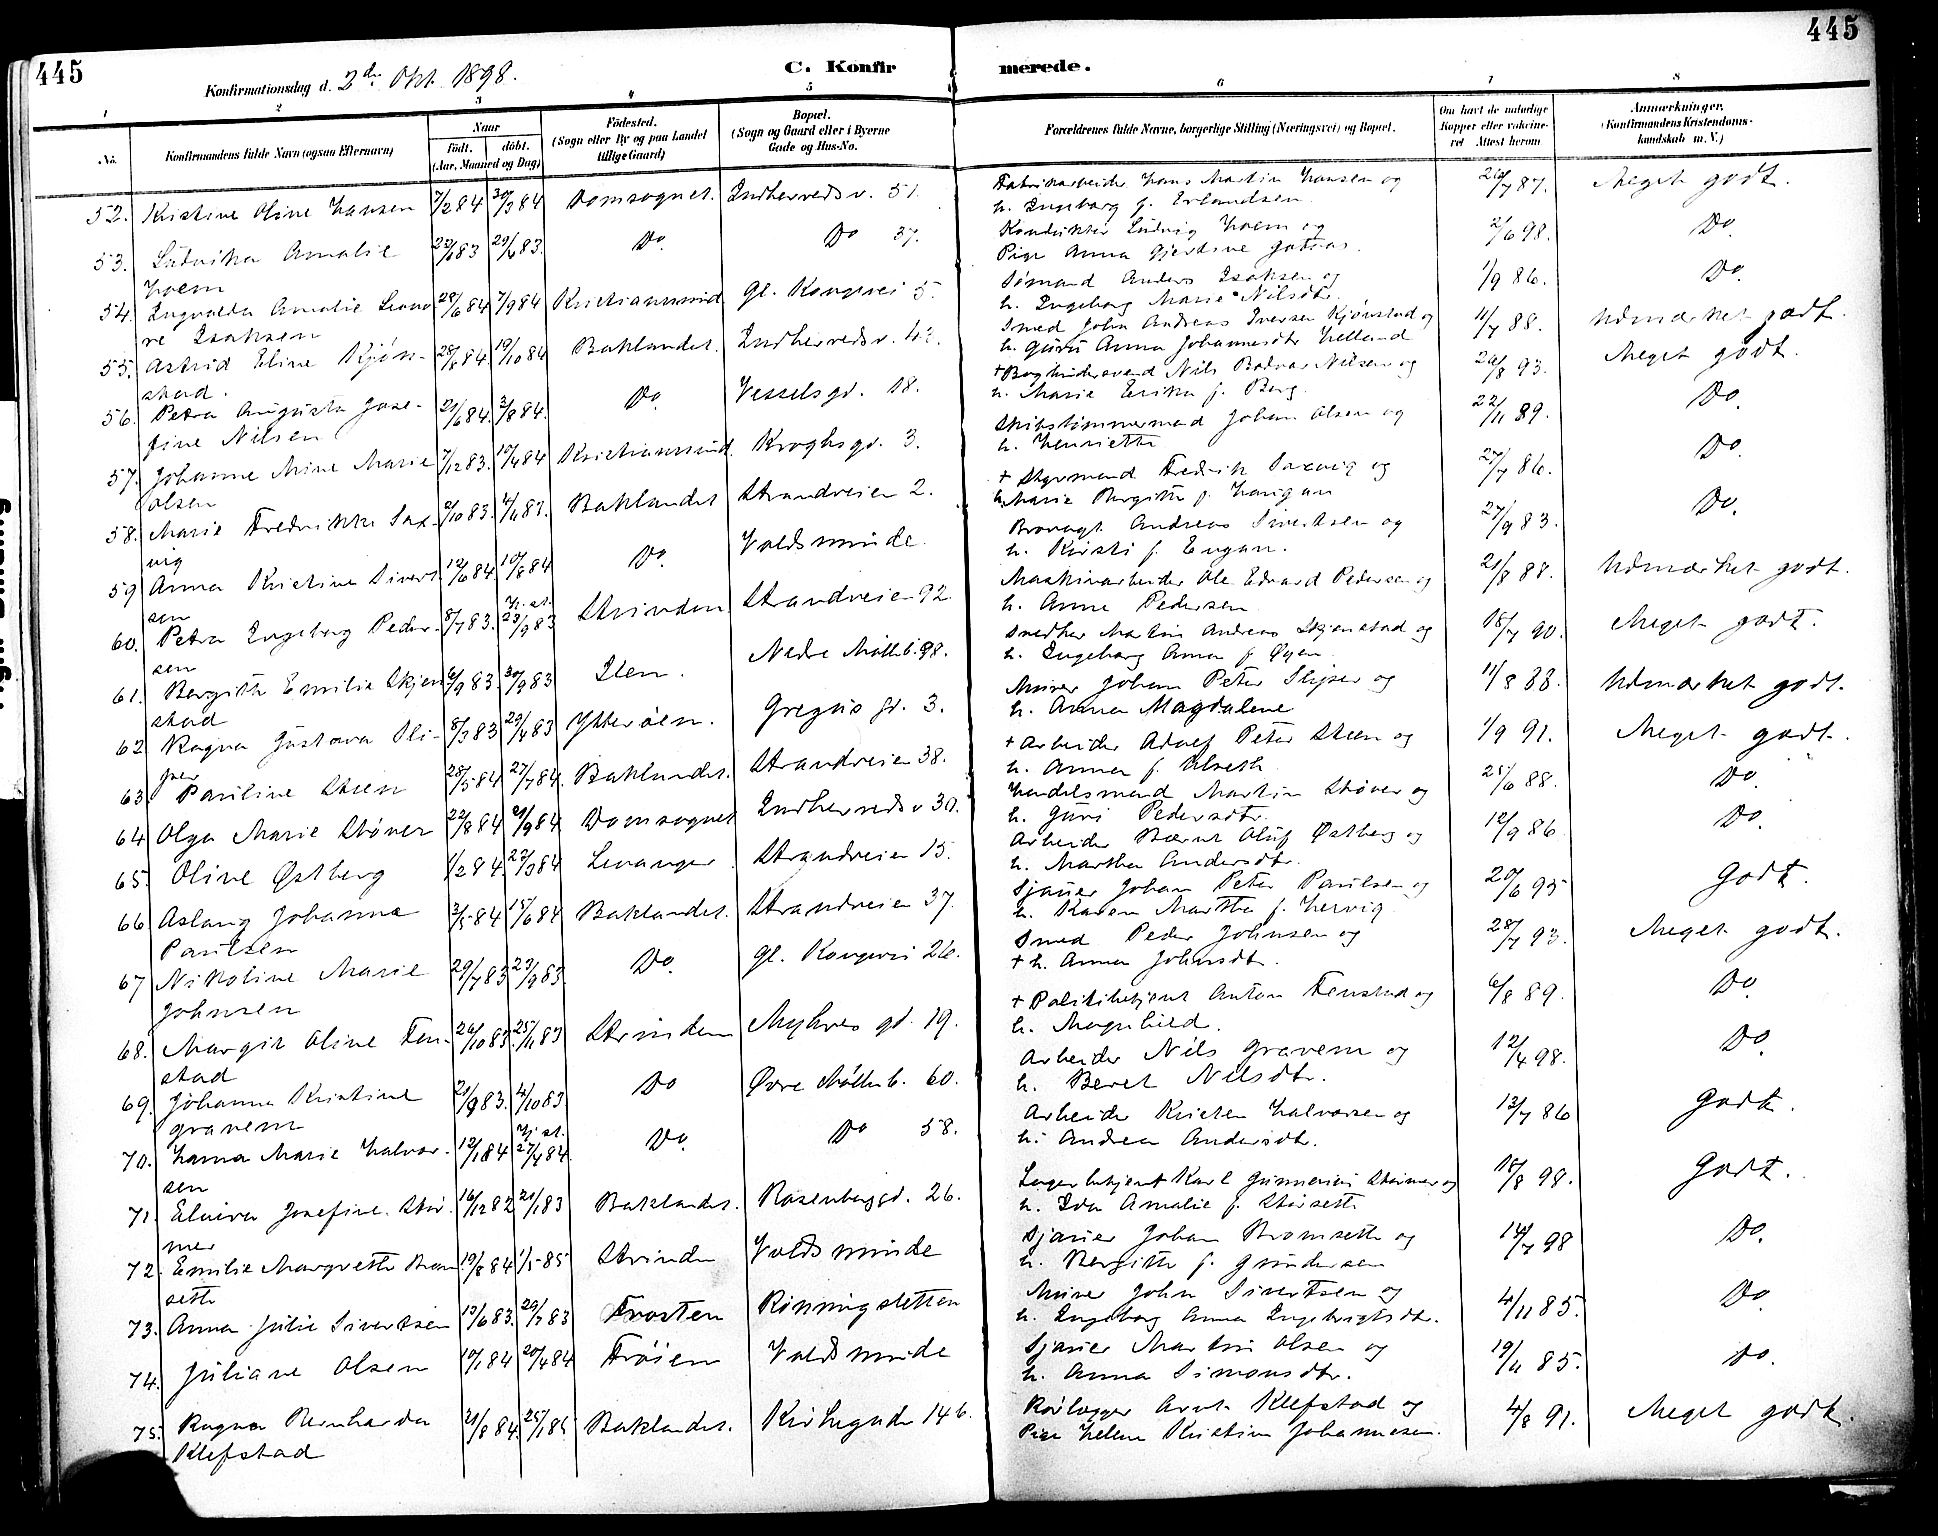 445
445
Konfirmationsdag d. 2den Okt. 1898.
C. Konfirmerede.
1 2 3 4 5 6 7 8
No.
Konfirmandens fulde Navn (ogsaa Efternavn)
Naar
født. døbt.
(Aar, Maaned og Dag)
Fødested.
(Sogn eller By og paa Landet
tillige Gaard)
Bopæl.
(Sogn og Gaard eller i Byerne
Gade og Hus-No.
Forældrenes fulde Navne, borgerlige Stilling (Næringsvei) og Bopæl.
Om havt de naturlige
Kopper eller vaccineret
Attest herom
Anmærkninger.
(Konfirmandens Kristendomskundskab m. V.)
52. Kristine Oline Hansen 7/2 84 30/3 84 Domsognet. Indherredsv. 51. Fabrikarbeider Hans Martin Hansen og
h. Ingeborg f. Erlandsen 26/7 87. Meget godt.
53. Ludvika Amalie
Hoem 22/1 83 29/4 83. Do. Do 37. Konduktør Ludvig Hoem og
Pige Anna Gjerdine 2/6 98. Do.
54. Ingvalda Amalie Leonore
Isaksen 28/6 84 7/9 84 Kristianssund gl. Kongevei 5. Sømand Anders Isaksen og
h. Ingeborg Marie Nilsdtr. 1/9 86. Do.
55. Astrid Eline Kjønstad.
28/8 84 19/10 84 Baklandet. Indherredsv. 42. Smed John Andreas Iversen Kjønstad og
h. Guru Anna Johannesdtr Helland 11/7 88. Udmærket godt.
56. Petra Augusta Josefine
Nilsen 21/6 84. 3/8 84. Do. Vesselsgd. 18. + Bogbindersvend Nils Bedvar Nilsen og
h. Marie Erika f. Berg. 26/8 93. Meget godt.
57. Johanne Mine Marie
Olsen 7/12 83. 10/4 84 Kristianssund. Kroghsgd. 3. Skibstømmermand Johan Olsen og
h. Henriette 22/11 89. Do.
58. Marie Fredrikke Saxvig
2/10 83. 4/11 83. Baklandet Strandveien 2. + Styrmand Fredrik Saxvig og
h. Marie Bergitte f. 27/7 86. Do.
59 Anna Kristine Sivertsen
12/6 84 10/8 84 Do. Voldsminde. Brovagt Andreas Sivertsen og
h. Kirsti f. Engan. 27/9 83. Do.
60. Petra Ingeborg Pedersen
8/7 83. Hj. st. 23/9 83 Strinden Strandveien 92. Maskinarbeider Ole Edvard Pedersen og
h. Anne Pedersen 21/8 88. Udmærket godt.
61. Bergitte Emilie Skjenstad
6/9 83. 30/9 83 Ilen. Nedre Mølleb. 98. Snedker Martin Andreas Skjenstad og
h. Ingeborg Anna f. Øyen 18/7 90. Meget godt.
62 Ragna Gustava Slipper
8/3 83 29/4 83 Ytterøen. Gregus gd. 3. Murer Johan Peter Sliper og
h. Anna Magdalene 11/8 88. Udmærket godt.
63 Pauline Steen 28/5 84 27/7 84. Baklandet. Strandveien 38. + Arbeider Adolf Peter Steen og
h. Anna f. Ulseth 1/9 91. Meget godt.
64 Olga Marie Støver 22/8 84 21/9 84 Domsognet Indherreds v 30. Handelsmand Martin Støver og
h. Guri Pedersdtr. 25/6 88. Do.
65. Oline Østberg 1/2 84 23/3 84 Levanger. Strandveien 15. Arbeider Bernt Oluf Østberg og
h. Martha Andersdtr. 12/9 86. Do.
66 Aslaug Johanna
Paulsen 3/5 84 15/6 84 Baklandet. Strandveien 37. Sjauer Johan Peter Paulsen og
h. Karen Martha f. Hervig 20/6 95 Godt.
67 Nikoline Marie
Johnsen 29/7 83 23/9 83 Do. gl. Kongevei 26. Smed Peder Johnsen og
+ h. Anna Johnsdtr. 28/7 93. Meget godt.
68. Margit Oline Fenstad
26/10 83 25/11 83 Strinden Myhres gd. 19. + Politibetjent Anton Fenstad og
h. Magnhild. 6/8 89. Do.
69. Johanna Kristine
Gravem 21/9 83. 4/10 83 Do Øvre Møllenb. 60. Arbeider Nils Gravem og
h. Beret Nilsdtr. 12/4 98. Do.
70. Hanna Marie Halvorsen
12/1 84 Hj. st. 27/4 84 Do. Do 58. Arbeider Kristen Halvorsen og
h. Andrea Andersdtr. 13/7 86 Godt.
71. Elvira Josefine Stormer
16/12 82 21/1 83 Baklandet. Rosenborggd. 26. Lagerbetjent Karl Gunnerius Størmer og
h. Ida Amalie f. Størseth 18/8 98. Godt.
72. Emilie Margrethe Bromseth
19/8 84 1/5 85 Strinden Voldsminde Sjauer Johan Bromseth og
h. Bergitte f. Gundersen 14/7 98 Do.
73. Anna Julie Sivertsen 13/6 83. 29/7 83 Frosten Rønningsletten Murer John Sivertsen og
h. Ingeborg Anna Ingebrigtsdtr. 4/11 85. Do.
74. Juliane Olsen 10/1 84 20/4 84 Frøien Voldsminde Sjauer Martin Olsen og
h. Anna Simonsdtr. 19/11 85. Do.
75. Ragna Bernharda
Klefstad 21/8 84 25/1 85 Baklandet. Kirkegaden 14 b. Rørlægger Arnt Klefstad og
Pige Helene Kristine Johannesen. 4/8 91. Meget godt.